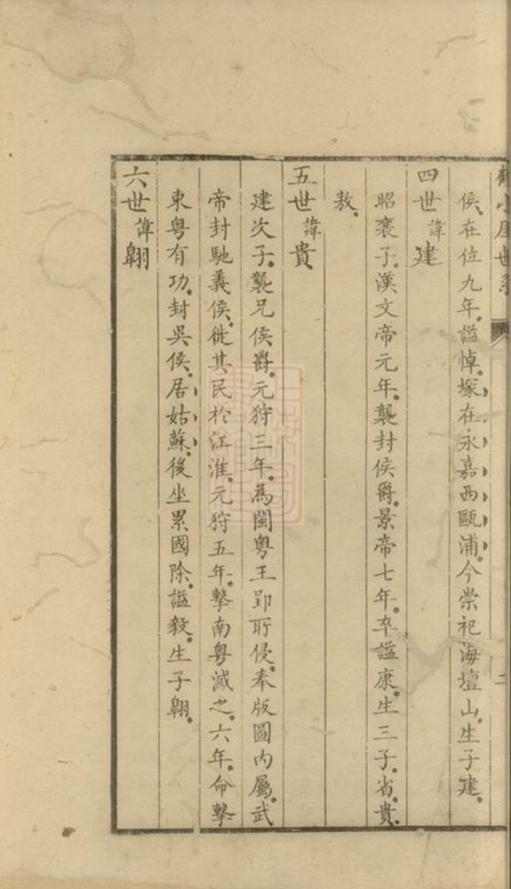 侯在位九年謚悼塚在永嘉西甌浦今崇祀海壇山生子建
四世諱建
昭襄子漢文帝元年襲封侯爵景帝七年卒謚康生三子省貴
敖
五世諱貴
建次子襲兄侯爵元狩三年為閩粵王郢所侵奉版圖內屬武
帝封馳義侯徙其民於江淮元狩五年擊南粵滅之六年命擊
東粵有功封吳侯居姑蘇後坐累國除謚毅生子翱
六世諱翱